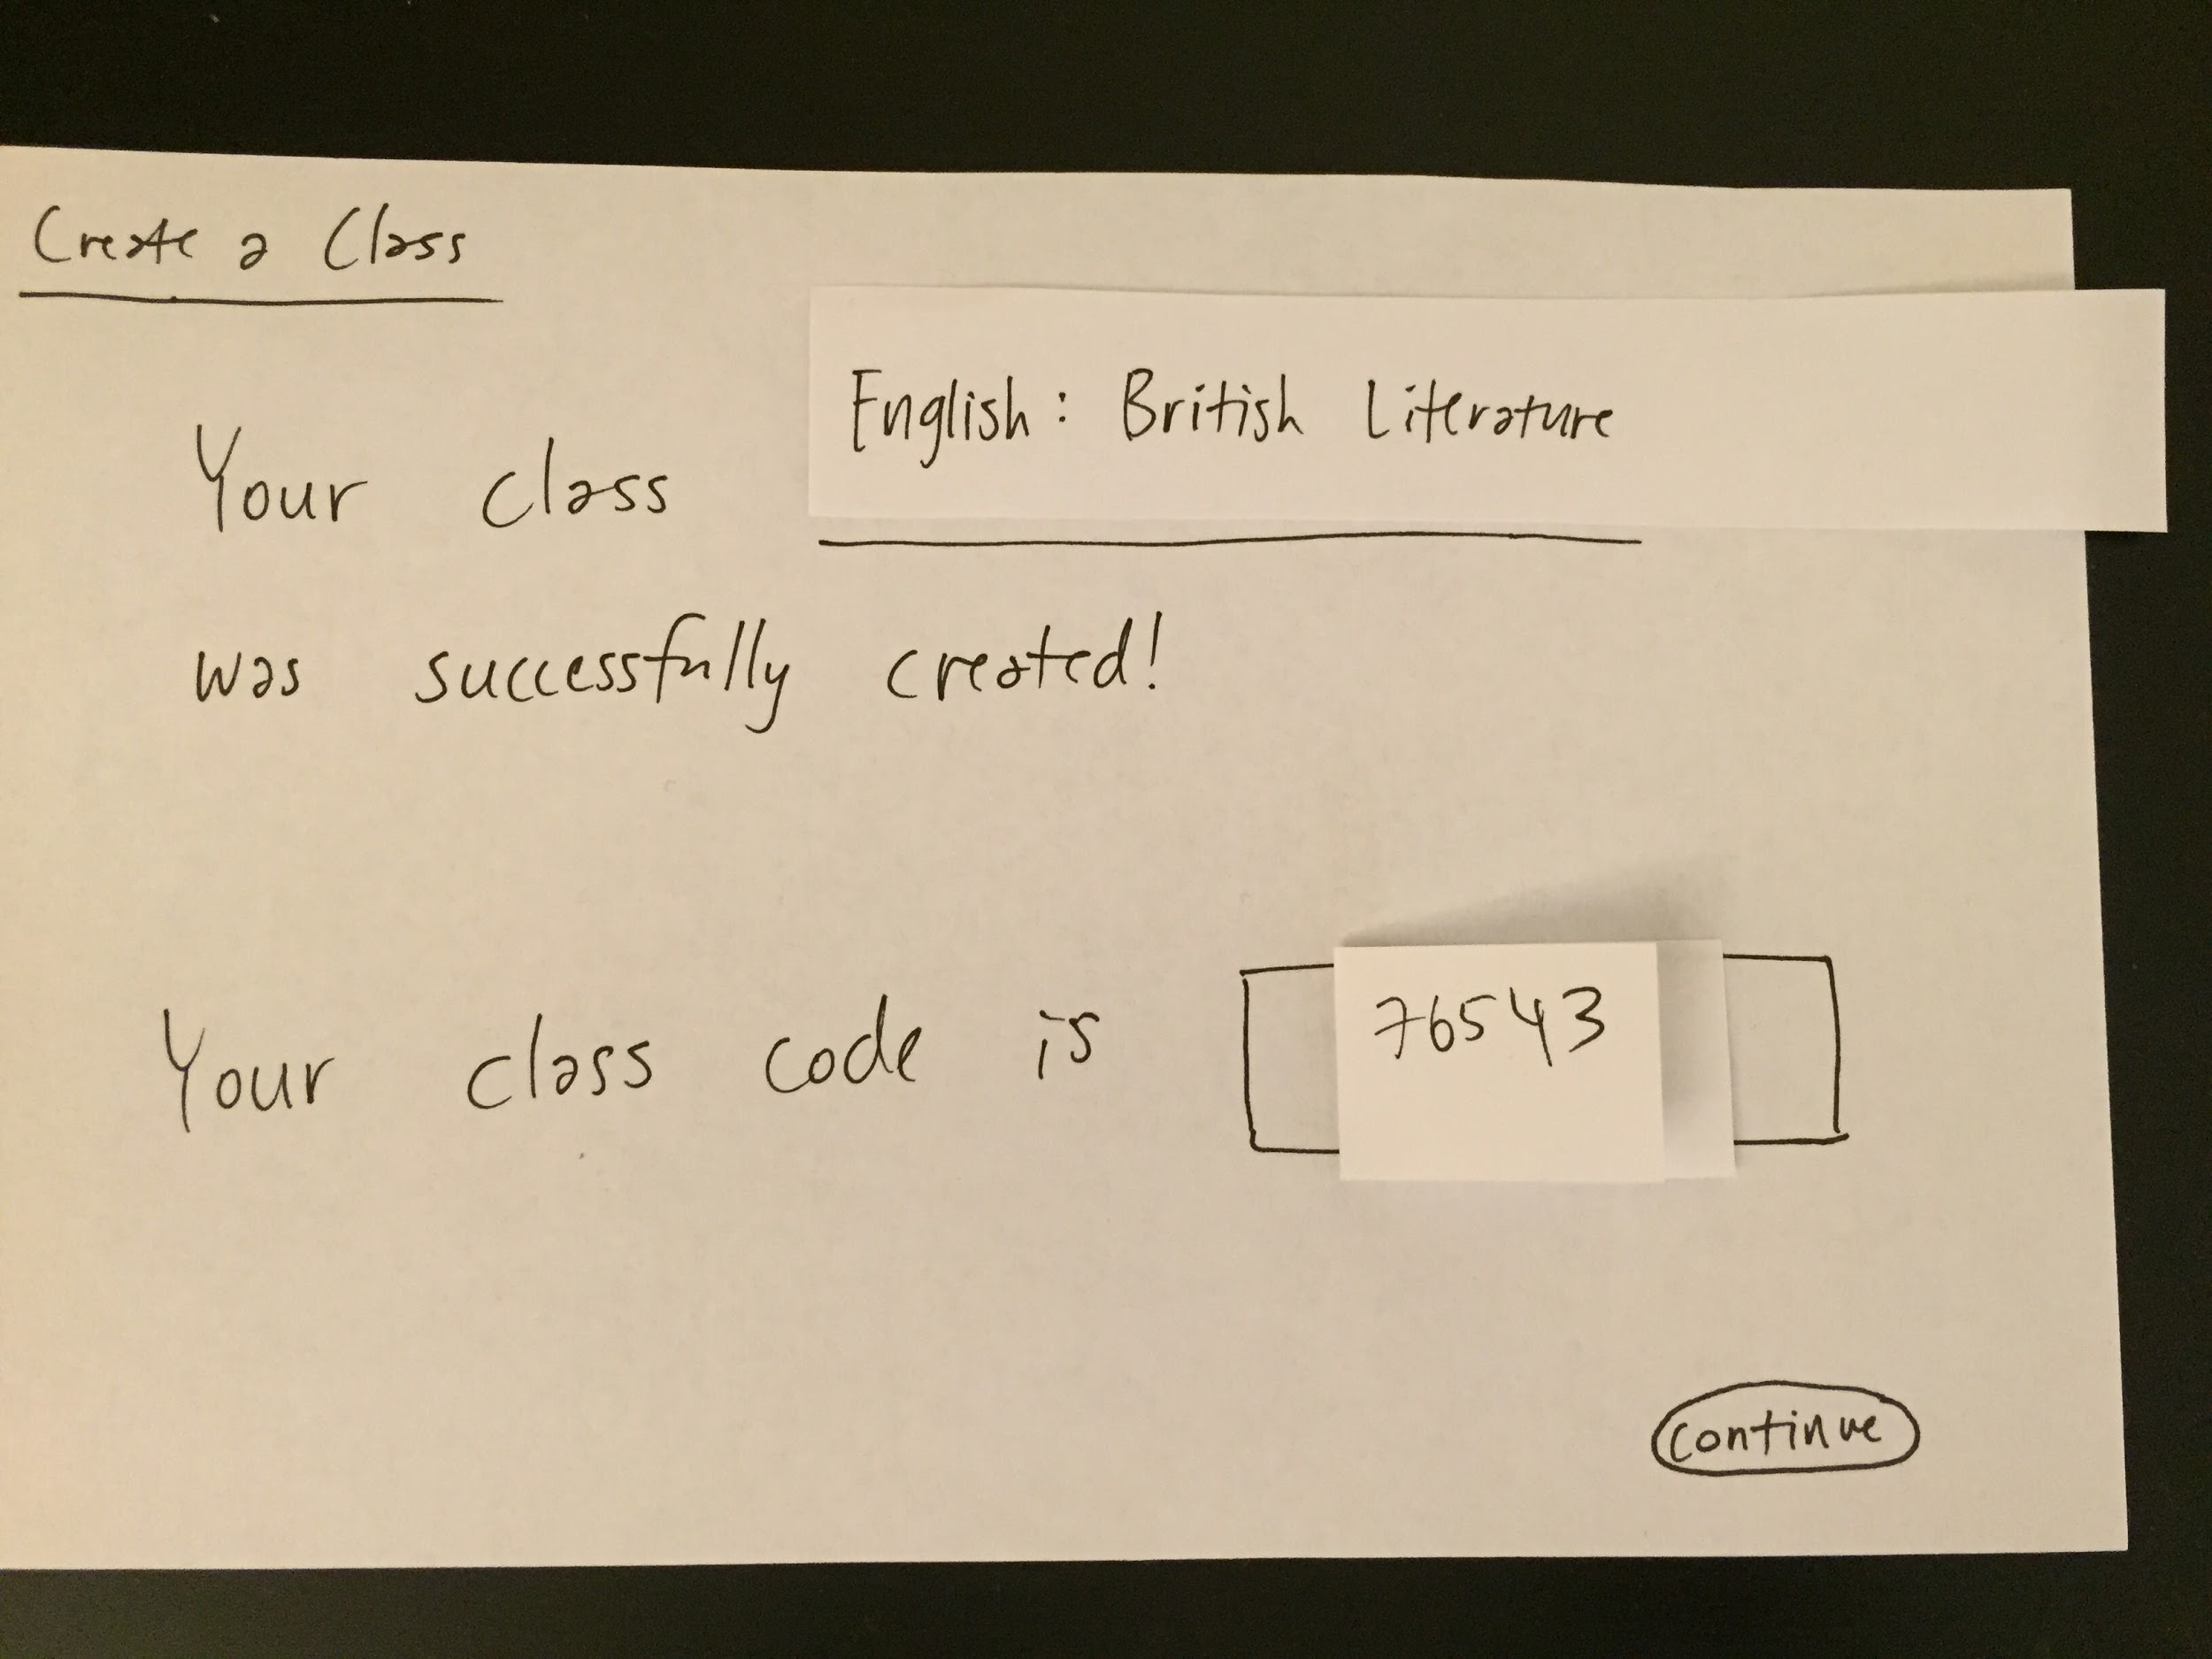 Create a Class
Your class English: British Literature
was successfully created!
Your class code is 76543
continue